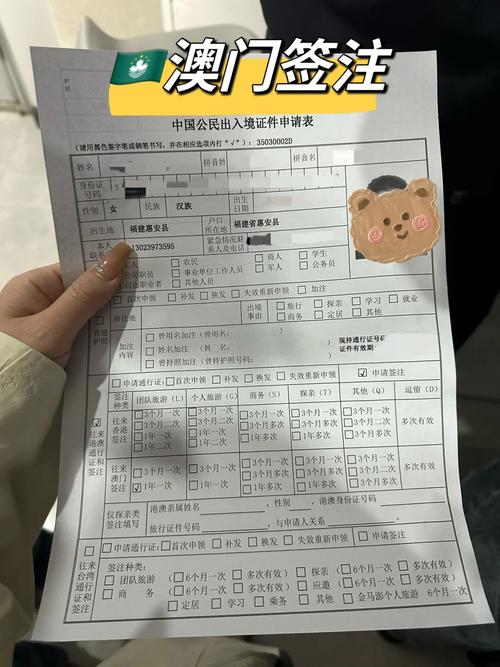 澳门签注
中国公民出入境证件申请表
(请用颜色签字笔或钢笔书写,并在相应选项内打"√"):35030002D
姓名 拼音姓 拼音名
身份证号码
性别 女 民族 汉族 出生日期
出生地 福建惠安县 户口所在地 福建省惠安县
本人联系 13023973595 紧急情况联系人及电话
工人 □农民 □商人 □学生
公司职员 □事业单位工作人员 □军人 □公务员
自由职业者 □其他人员
护照
普通护照
□首次申领 □补发 □换发 □失效重新申领 □加注
前往地 出境事由 □旅行 □探亲 □学习 □就业
□商务 □定居 □其他
加注内容 □曾用名加注(曾用名:
□姓名加注(姓 名:
□曾持护照加注(曾持护照号码:
现持通行证号码
证件有效期:
☑往来港澳通行证和签注
□申请通行证:□首次申领 □补发 □换发 □失效重新申领 ☑申请签注
签注种类 团队旅游(L) 个人旅游(G) 商务(S) 探亲(T) 其他(Q) 逗留(D)
往来香港签注
□3个月一次 □3个月一次 □3个月一次 □3个月一次 □3个月一次 多次有效
□3个月二次 □3个月二次 □3个月多次 □3个月多次 □3个月二次
□1年一次 □1年一次 □1年多次 □1年多次 □3个月多次
□1年二次 □1年二次
往来澳门签注
□3个月一次 □3个月一次 □3个月一次 □3个月一次 □3个月一次 多次有效
☑1年一次 □1年一次 □3个月多次 □3个月多次 □3个月二次
□1年多次 □1年多次 □3个月多次
仅探亲类签注填写 港澳亲属姓名 ,性别 ,港澳身份证号码
旅行证件号码 ,与申请人关系 。
□往来台湾通行证和签注
□申请通行证:□首次申领 □补发 □换发 □失效重新申领 □申请签注
签注种类 □团队旅游 (□6个月一次 □多次有效) □探亲 (□6个月一次 □多次有效)
□商务 (□6个月一次 □多次有效) □应邀 (□6个月一次 □多次有效)
□定居 □学习 □乘务 □其他 □金马澎个人旅游 6个月一次